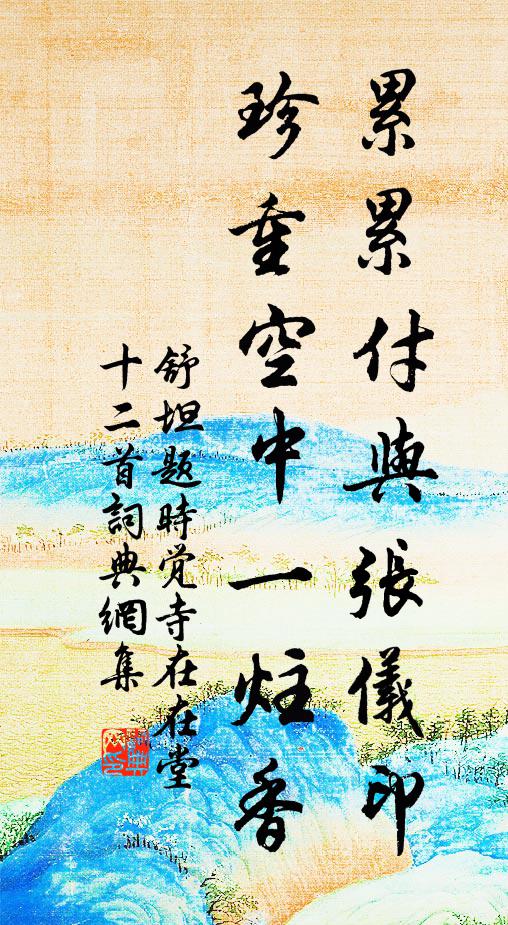 累累付與張儀印
珍重空中一炷香
舒坦題時觉寺在在堂
十二首詞典網集